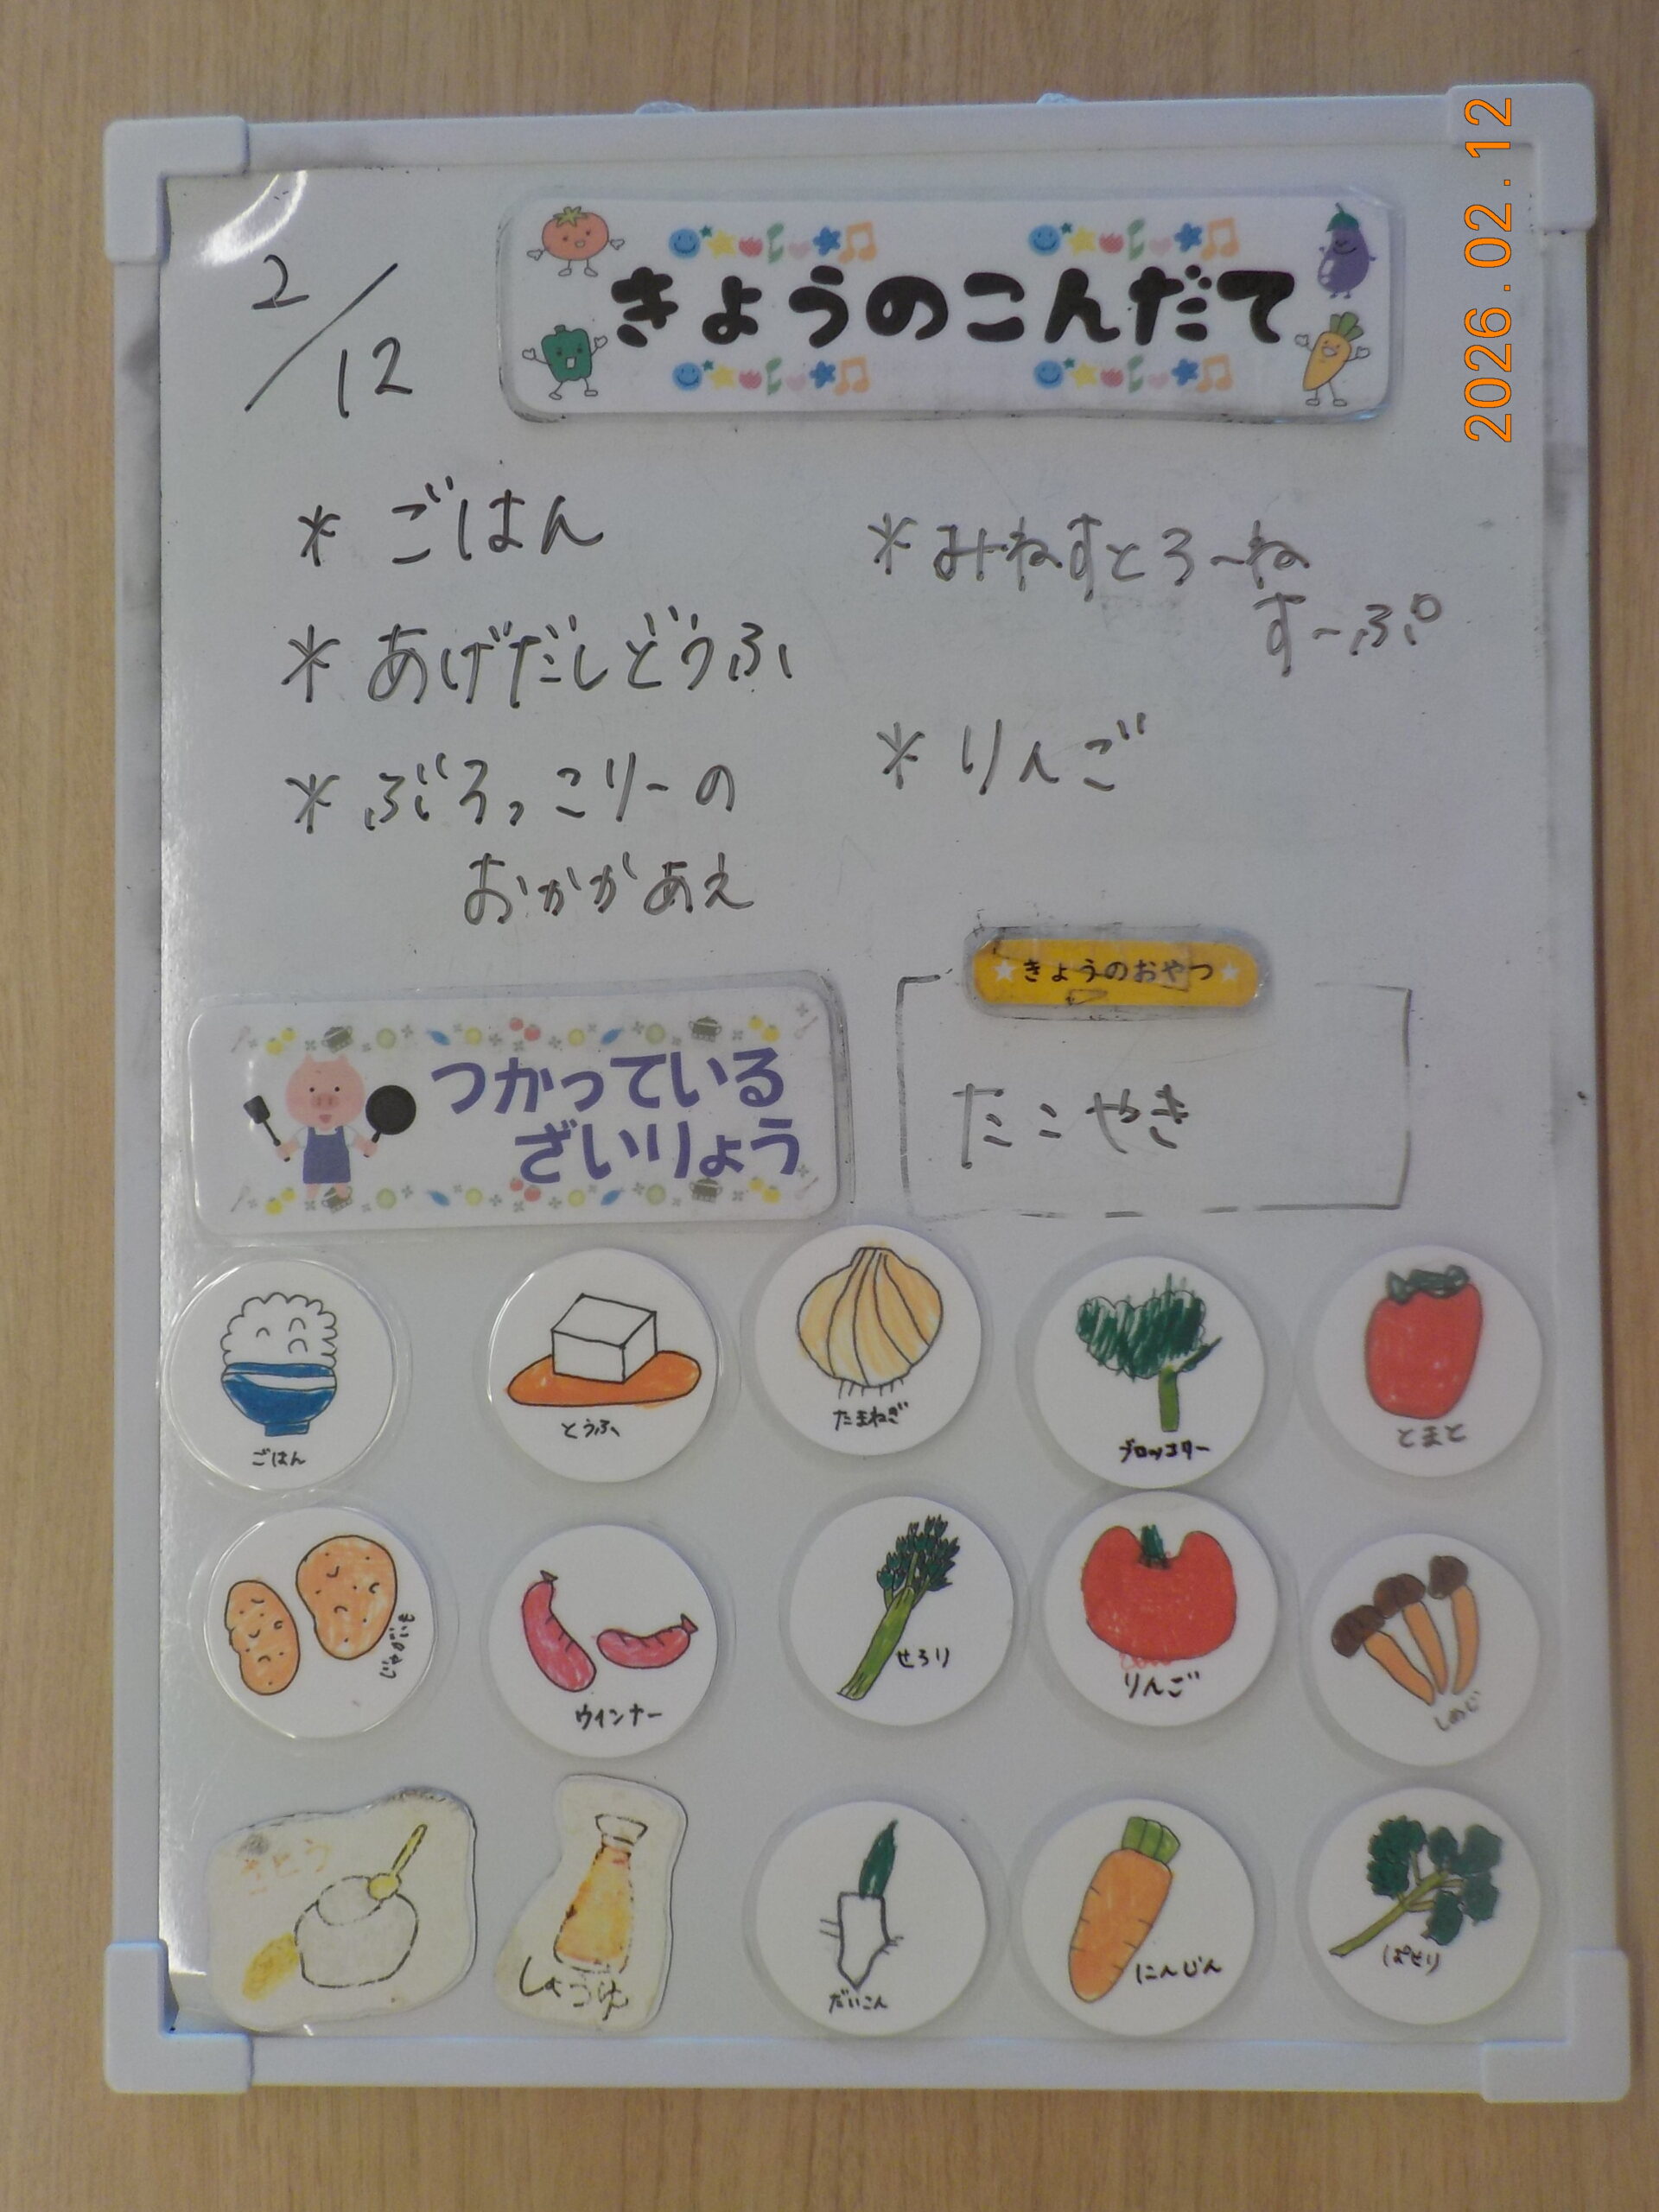 2026.02.12
2/12
きょうのこんだて
* ごはん
* あげだしどうふ
* ぶろっこりーの
おかかあえ
* みねすとろーね
すーぷ
* りんご
きょうのおやつ
たこやき
つかっている
ざいりょう
ごはん
とうふ
たまねぎ
ブロッコリー
とまと
じゃがいも
ウインナー
せろり
りんご
しめじ
さとう
しょうゆ
だいこん
にんじん
ぱせり